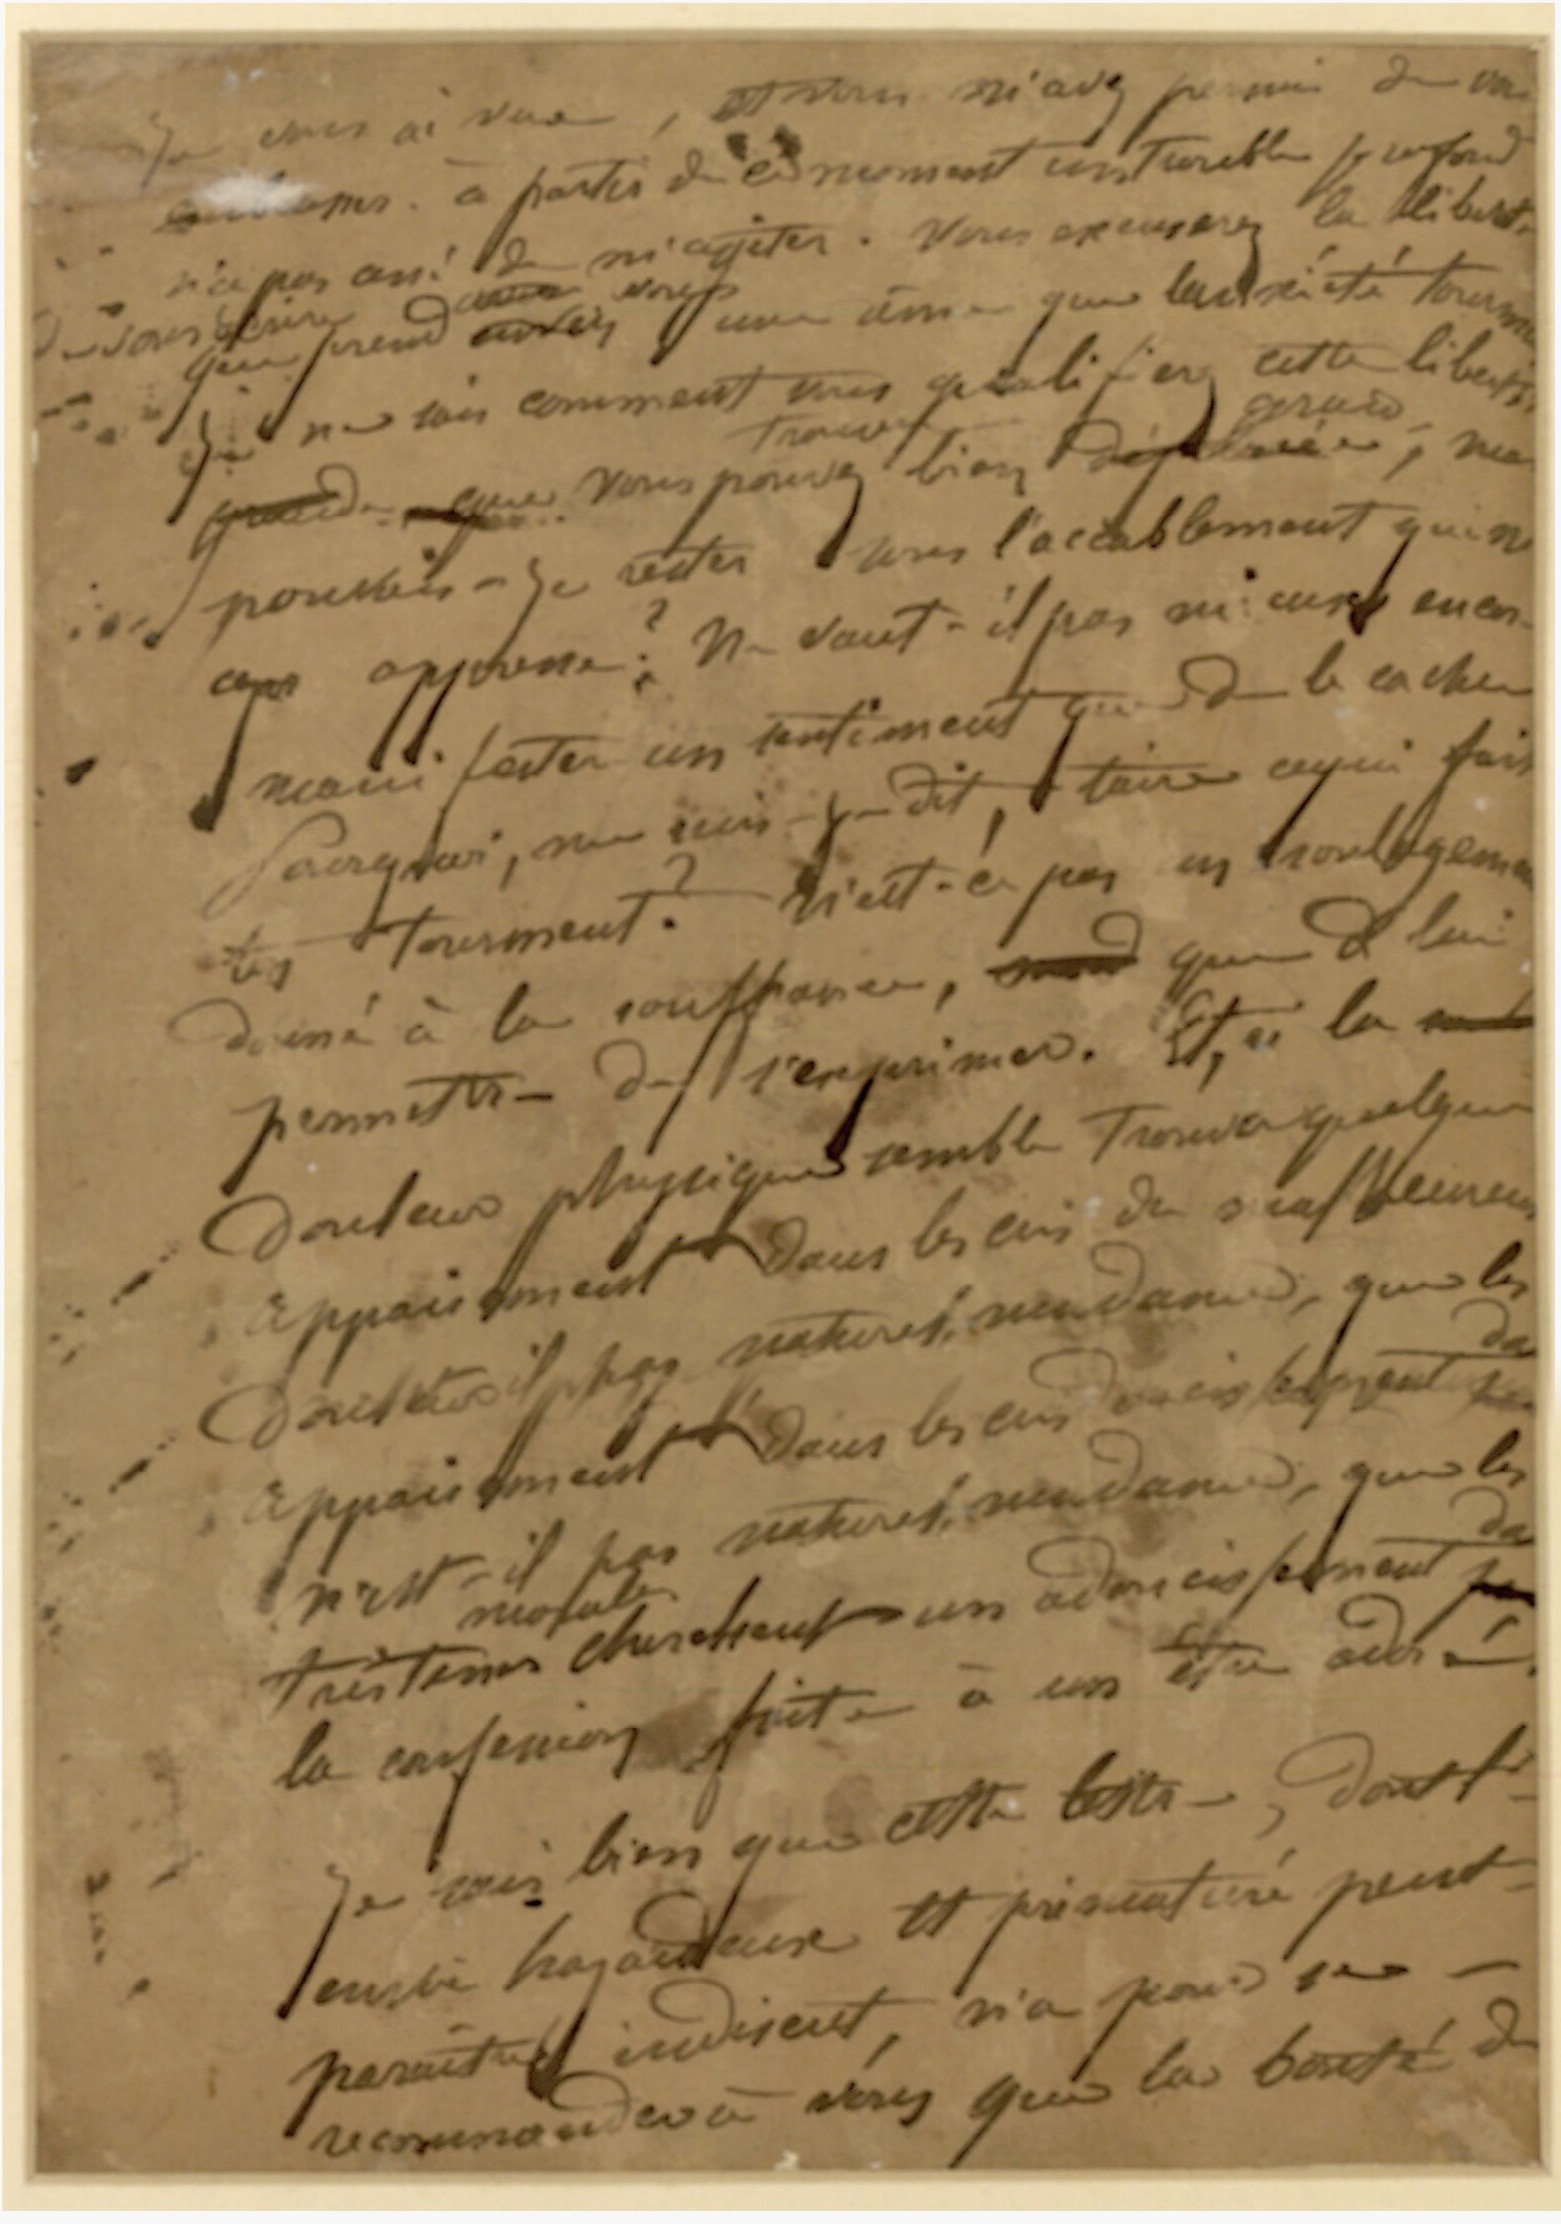 Je vous ai vue, et vous m'avez permis de vous
à partir de ce moment un trouble profond
n'a pas cessé de m'agiter. Vous excuserez la liberté
de vous écrire
que prend vers vous une âme que l'anxiété tourmente
Je ne sais comment vous qualifierez cette liberté
trouver grande
que vous pouvez bien ; mais
pouvais-je rester sous l'accablement qui m'
oppresse ? Ne vaut-il pas mieux encore
manifester un sentiment que de le cacher
Pourquoi, me suis-je dit, taire ce qui fait
ton tourment ? N'est-ce pas un soulagement
donné à la souffrance, que de lui
permettre de s'exprimer. Et, si la
douleur physique semble trouver quelque
appaisement dans les cris du malheureux
douleur il pas naturel, madame, que les
da
appaisement dans les cris
n'est-il pas naturel, madame, que les
morales da
tristesses cherchent un adoucissement
la confession faite à un être adoré.
Je sais bien que cette lettre, dont l'
envoi hazardeux et prématuré peut-
paraître indiscret, n'a pour se
recommander à vous que la bonté de